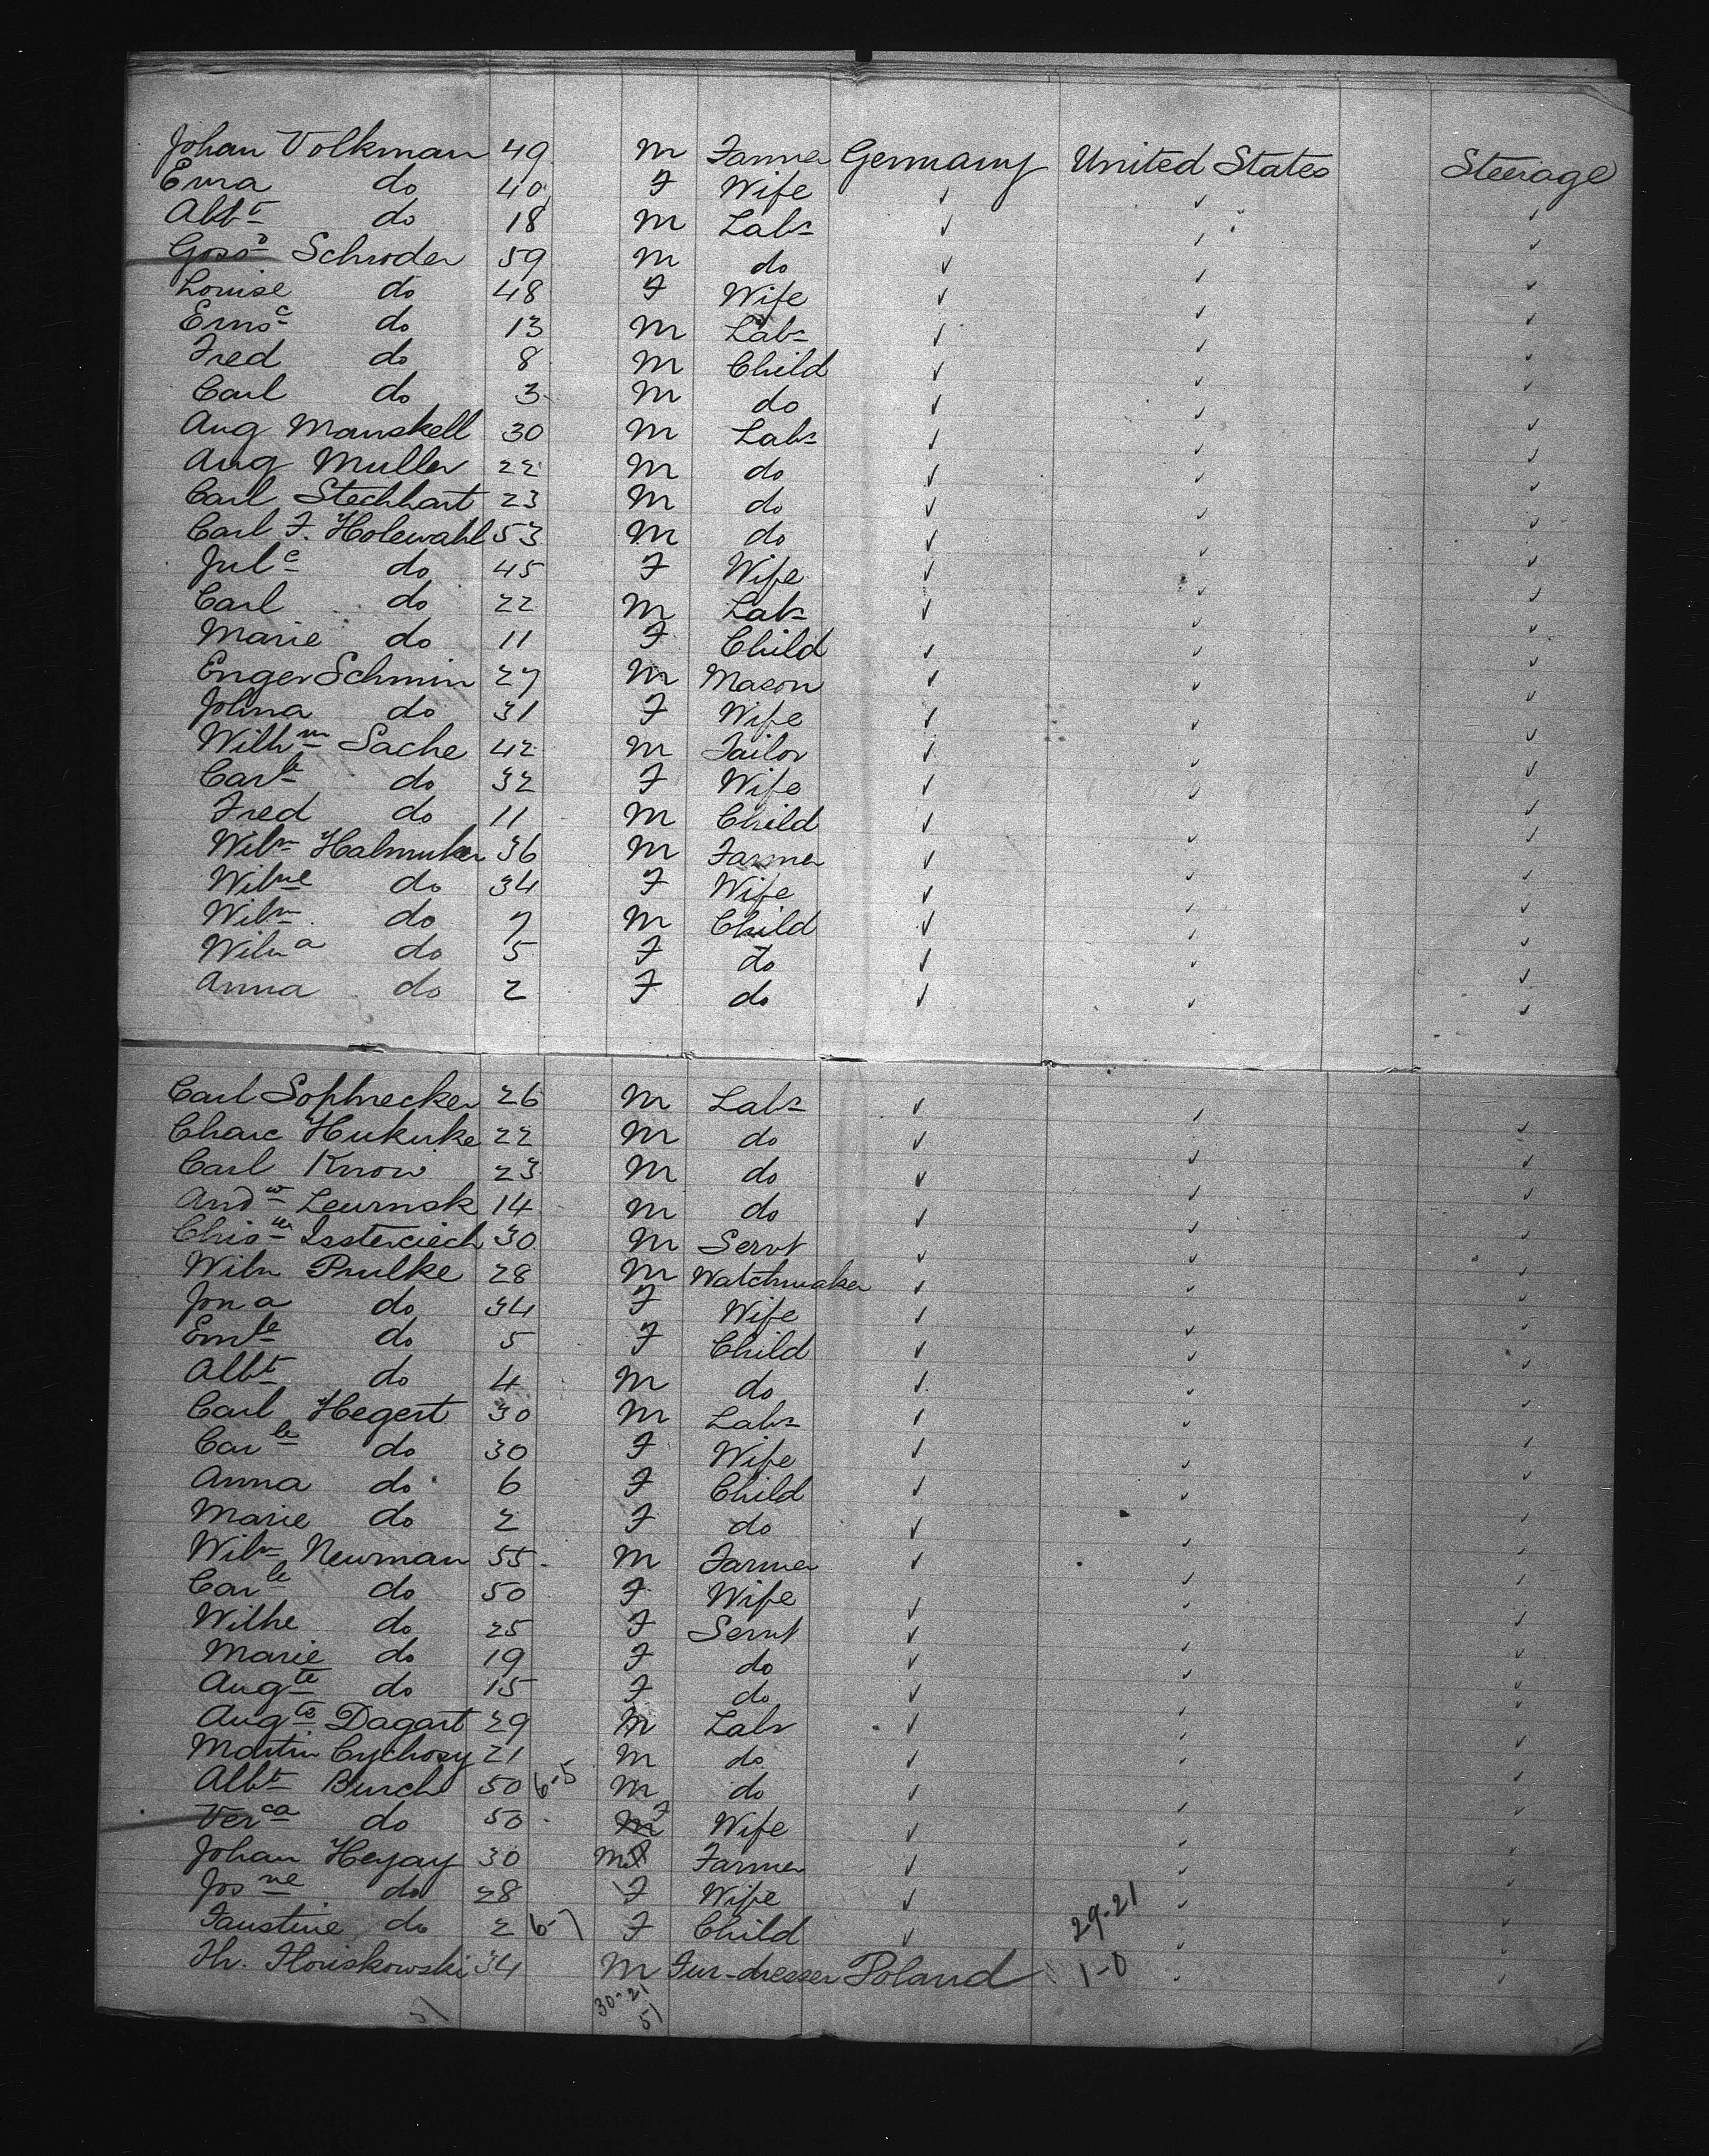 Johan Volkman 49 M Farmer Germany United States Steerage
Erna do 40 F Wife ✓ ✓ ✓
Albt do 18 M Labr ✓ ✓ ✓
Schroder 59 M do ✓ ✓ ✓
Louise do 48 F Wife ✓ ✓ ✓
Ernsc do 13 M Labr ✓ ✓ ✓
Fred do 8 M Child ✓ ✓ ✓
Carl do 3 M do ✓ ✓ ✓
Aug Manskell 30 M Labr ✓ ✓ ✓
Aug Muller 22 M do ✓ ✓ ✓
Carl Stechhart 23 M do ✓ ✓ ✓
Carl F. Holewahl 53 M do ✓ ✓ ✓
Jule do 45 F Wife ✓ ✓ ✓
Carl do 22 M Labr ✓ ✓ ✓
Marie do 11 F Child ✓ ✓ ✓
Enger Schmin 27 M Mason ✓ ✓ ✓
Johna do 31 F Wife ✓ ✓ ✓
Wilhm Sache 42 M Tailor ✓ ✓ ✓
Carle do 32 F Wife ✓ ✓ ✓
Fred do 11 M Child ✓ ✓ ✓
Wilm Halmuker 36 M Farmer ✓ ✓ ✓
Wilme do 34 F Wife ✓ ✓ ✓
Wilm do 7 M Child ✓ ✓ ✓
Wilma do 5 F do ✓ ✓ ✓
Anna do 2 F do ✓ ✓ ✓
Carl Sophnecker 26 M Labr ✓ ✓ ✓
Charc Hukuke 22 M do ✓ ✓ ✓
Carl Know 23 M do ✓ ✓ ✓
Andw Leurnsk 14 M do ✓ ✓ ✓
Issterciech 30 M Servt ✓ ✓ ✓
Wilm Prulke 28 M Watchmaker ✓ ✓ ✓
Jona do 34 F Wife ✓ ✓ ✓
Emle do 5 F Child ✓ ✓ ✓
Albt do 4 M do ✓ ✓ ✓
Carl Hegert 30 M Labr ✓ ✓ ✓
Carle do 30 F Wife ✓ ✓ ✓
Anna do 6 F Child ✓ ✓ ✓
Marie do 2 F do ✓ ✓ ✓
Wilm Newman 55 M Farmer ✓ ✓ ✓
Carle do 50 F Wife ✓ ✓ ✓
Wilhe do 25 F Servt ✓ ✓ ✓
Marie do 19 F do ✓ ✓ ✓
Augte do 15 F do ✓ ✓ ✓
Augte Dagart 29 M Labr ✓ ✓ ✓
Martin Cychosy 21 M do ✓ ✓ ✓
Albt Burch 50 6-5 M do ✓ ✓ ✓
Verca do 50 F Wife ✓ ✓ ✓
Johan Heyay 30 M Farmer ✓ ✓ ✓
Josne do 28 F Wife ✓ ✓ ✓
Faustine do 2 6-7 F Child ✓ 29-21 ✓ ✓
Floriskowski 34 M Fur-dresser Poland 1-0 ✓ ✓
30-21
51 51